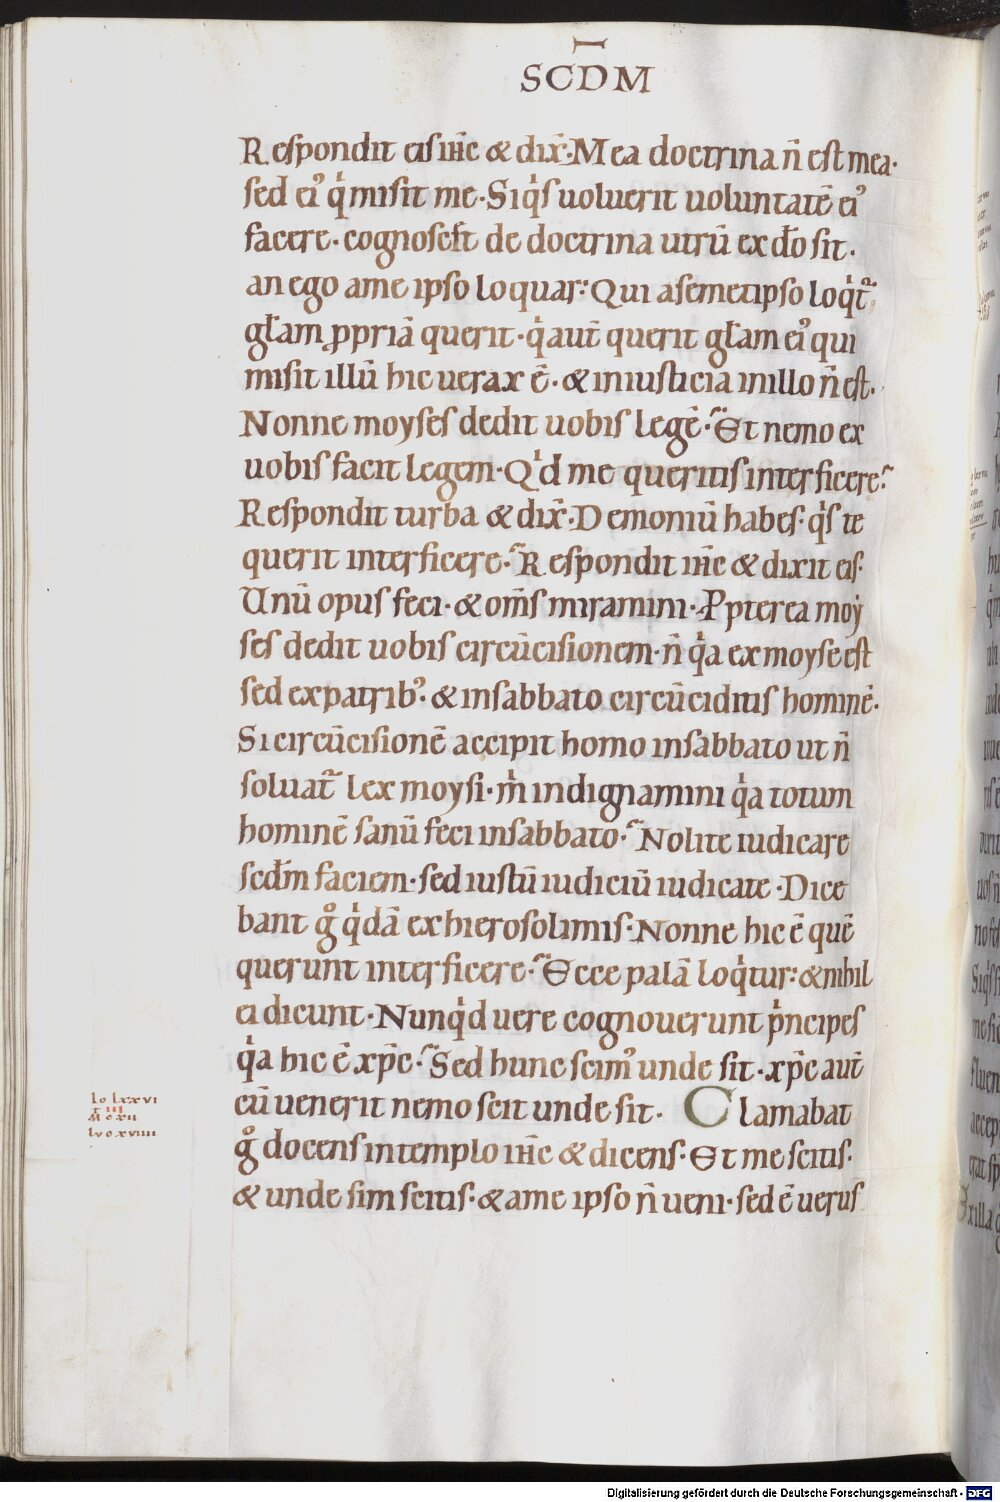 SCDM
Respondit eis ih̅c & dix̅·Mea doctrina n̅ est mea·
sed ei᾽ qͥ misit me·Siqͥs uoluerit uoluntate̅ ei᾽
facere·cognoscet̅ de doctrina utru̅ ex do̅ sit·
an ego ame ipso loquar:Qui asemetipso loqͥt᷑
gl̅am ꝓpria̅ querit·qͥ aut̅ querit gl̅am ei᾽ qui
misit illu̅ hic uerax e̅·& iniusticia inillo n̅ est·
Nonne moyses dedit uobis lege̅·̃Et nemo ex
uobis facit legem·Qͥd me queritis interficere·̃
Respondit turba & dix̅·Demoniu̅ habes·qͥs te
querit interficere·̃Respondit ih̅c & dixit eis·
Unu̅ opus feci·& om̅s miramini·Ꝓpterea moy
ses dedit uobis circu̅cisionem·n̅ qͥa ex moyse est
sed expatrib᾽·& insabbato circu̅ciditis homine̅·
Si circu̅cisione̅ accipit homo insabbato ut n̅
soluat᷑ lex moysi·mͥ indignamini qͥa totum
homine̅ sanu̅ feci insabbato·̃Nolite iudicare
scd̅m faciem·sed iustu̅ iudiciu̅ iudicate·Dice
bant gͦ qͥda̅ ex hierosolimis·Nonne hic e̅ que̅
querunt interficere·̃Ecce pala̅ loqͥtur:& nihil
ei dicunt·Nunqͥd uere cognouerunt pͥncipes
qͥa hic e̅ xp̅c·̃Sed hunc scim᾽ unde sit·xp̅c aut̅
cu̅ uenerit nemo scit unde sit· Clamabat
gͦ docens intemplo ih̅c & dicens·Et me scitis·
& unde sim scitis·& ame ipso n̅ ueni·sed e̅ uerus
Io lxxvi
III
M cxii
lu cxviiii
Digitalisierung gefördert durch die Deutsche Forschungsgemeinschaft - DFG